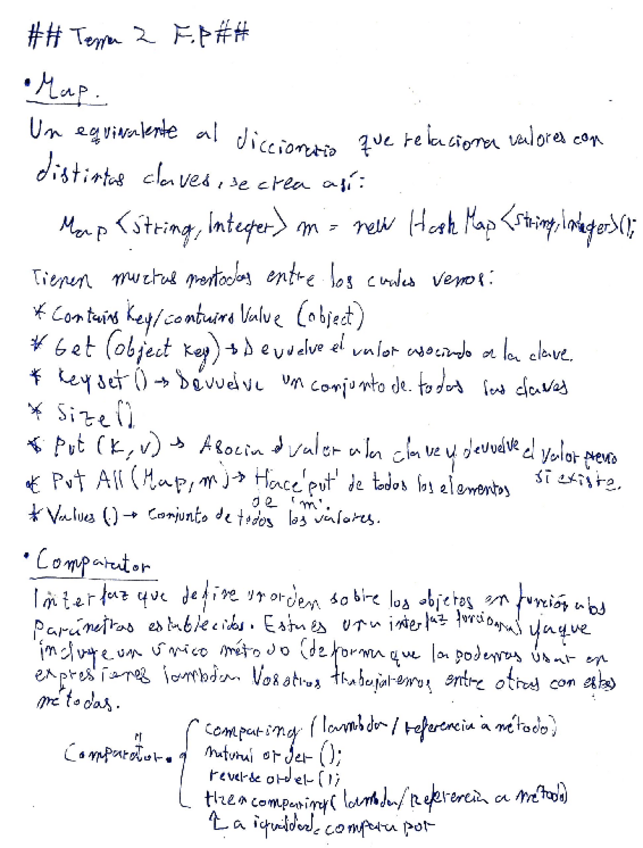 ## Tema 2 F.P##
• Map.
Un equivalente al diccionario que relaciona valores con
distintas claves, se crea así:
Map <String, Integer> m = new HashMap <String, Integer>();
Tienen muchas metodos entre los cuales vemos:
* Contains Key/contains Value (object)
* Get (object key) → Devuelve el valor asociado a la clave.
* Key set () → Devuelve un conjunto de todas las claves
* Size()
* Put (K, v) → Asocia el valor a la clave y devuelve el valor previo
si existe.
* Put All (Map, m) → Hace 'put' de todos los elementos
de 'm'.
* Values () → Conjunto de todos los valores.
• Comparator
Interfaz que define un orden sobre los objetos en función a los
parámetros establecidos. Esta es una interfaz funcional ya que
incluye un único método (de forma que la podemos usar en
expresiones lambda. Nosotros trabajaremos entre otras con estos
métodos.
Comparator.
comparing (lambda/referencia a método)
natural order ();
reverse order ();
then comparing (lambda/referencia a método)
↳ a igualdad compara por